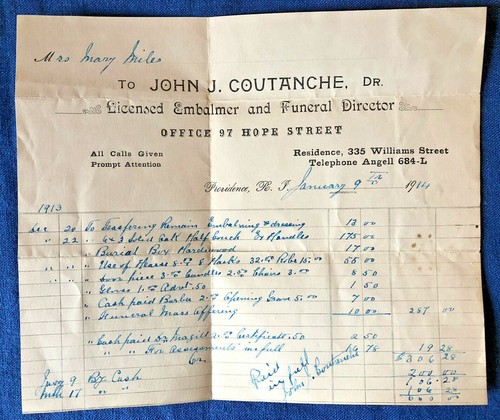 Mrs Mary Miles
TO JOHN J. COUTANCHE, DR.
Licensed Embalmer and Funeral Director
OFFICE 97 HOPE STREET
All Calls Given
Prompt Attention
Residence, 335 Williams Street
Telephone Angell 684-L
Providence, R. I. January 9th 1914
1913
Dec 20 To Remain Embalming & dressing 13 00
" 22 " Solid Oak Half Couch Handles 175 00
" Burial Box Hardwood 17 00
" " " Use of Hearse 8.00 5 Hacks 32.00 Robe 15.00 55 00
" " " Door piece 3.00 Candles 2.50 Chairs 3.00 8 50
" Gloves 1.00 Advt .50 1 50
" Cash paid Barber 2.00 Opening Grave 5.00 7 00
" Funeral Mass offering 10 00 287 00
" Cash paid Dr Magill 2.00 Certificate .50 2 50
" " For in full 16 78 19 28
Cr. $306 28
Jany 9 By Cash 200 00
Mch 17 " " 106 28
106 28
Paid
in full
John J. Coutanche